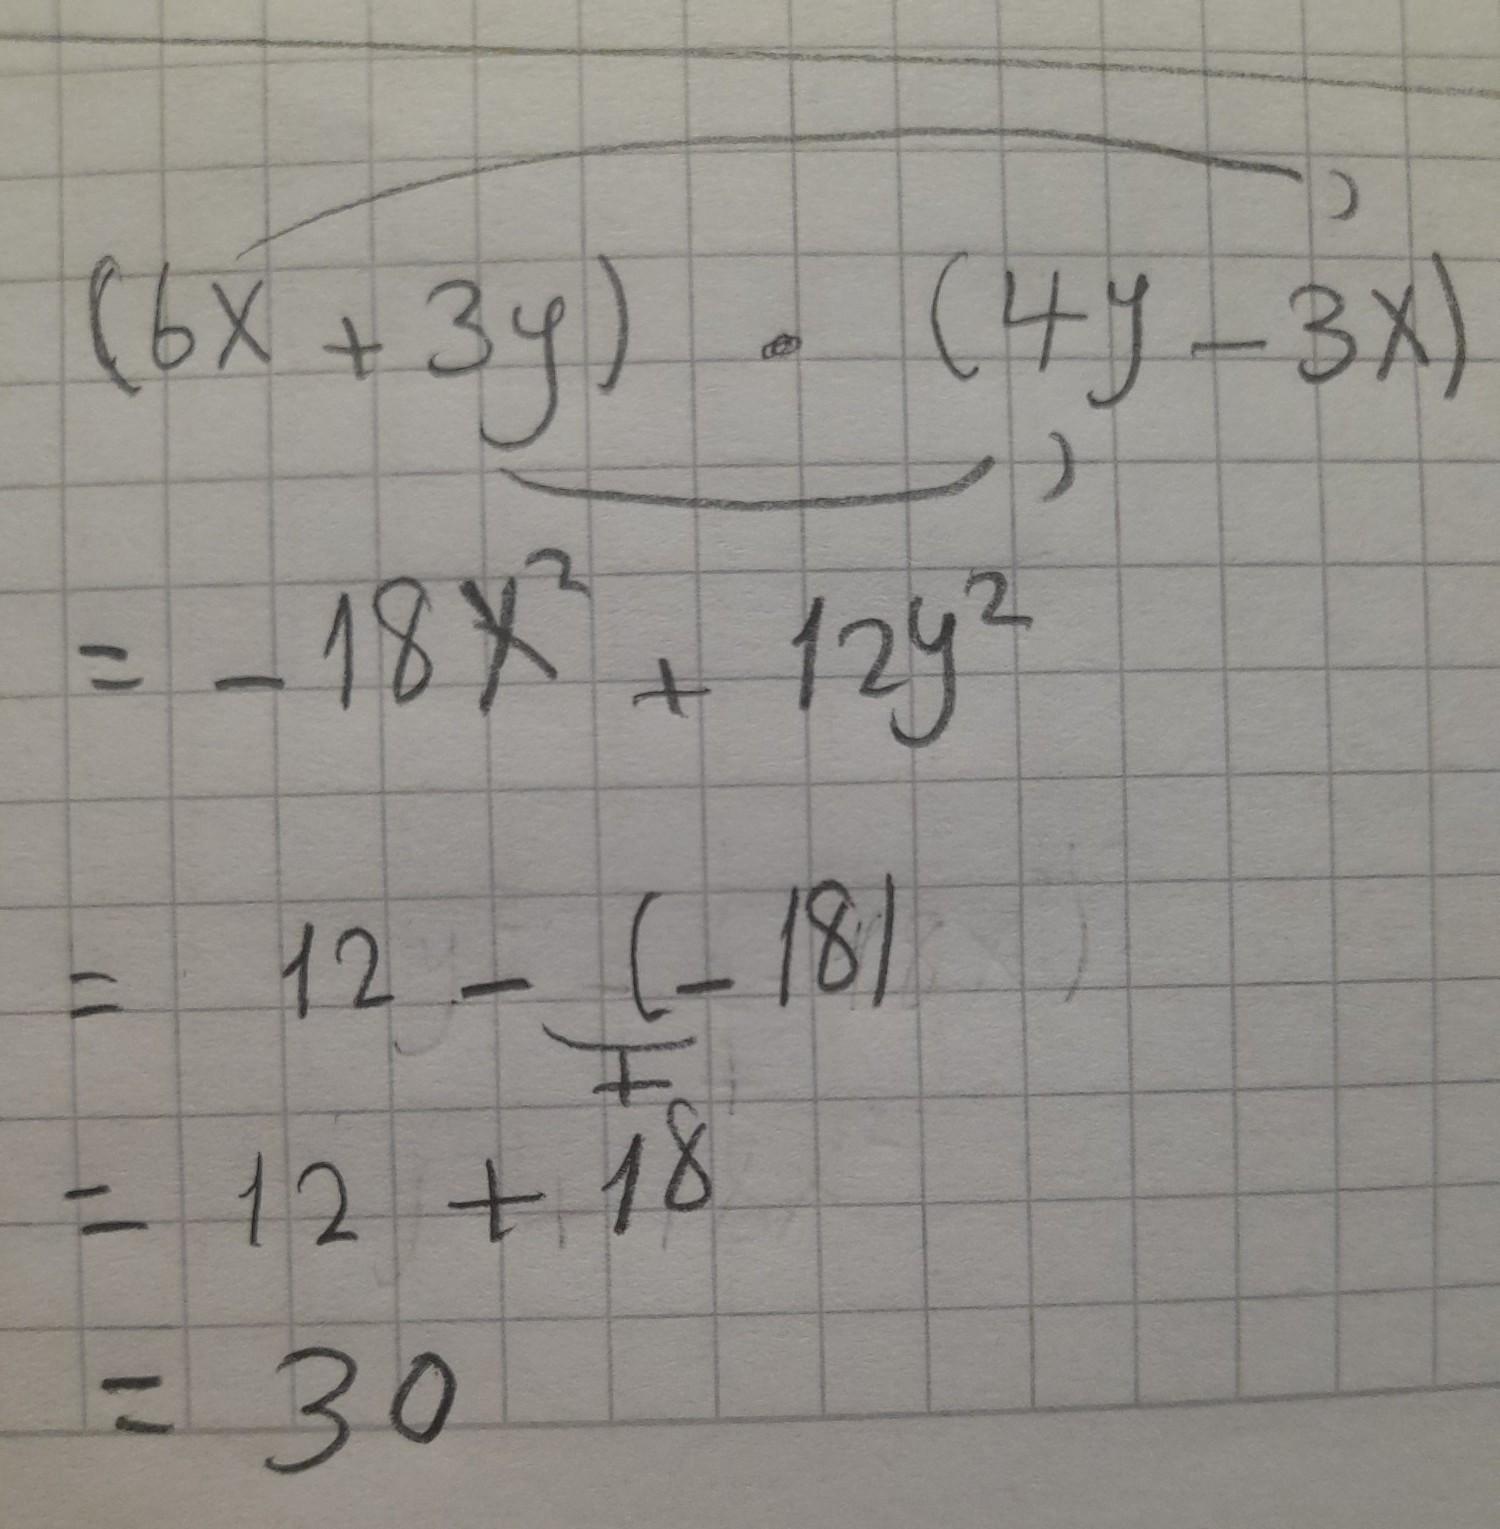 (6x + 3y) · (4y - 3x)
= - 18x² + 12y²
= 12 - (-18)
+
= 12 + 18
= 30